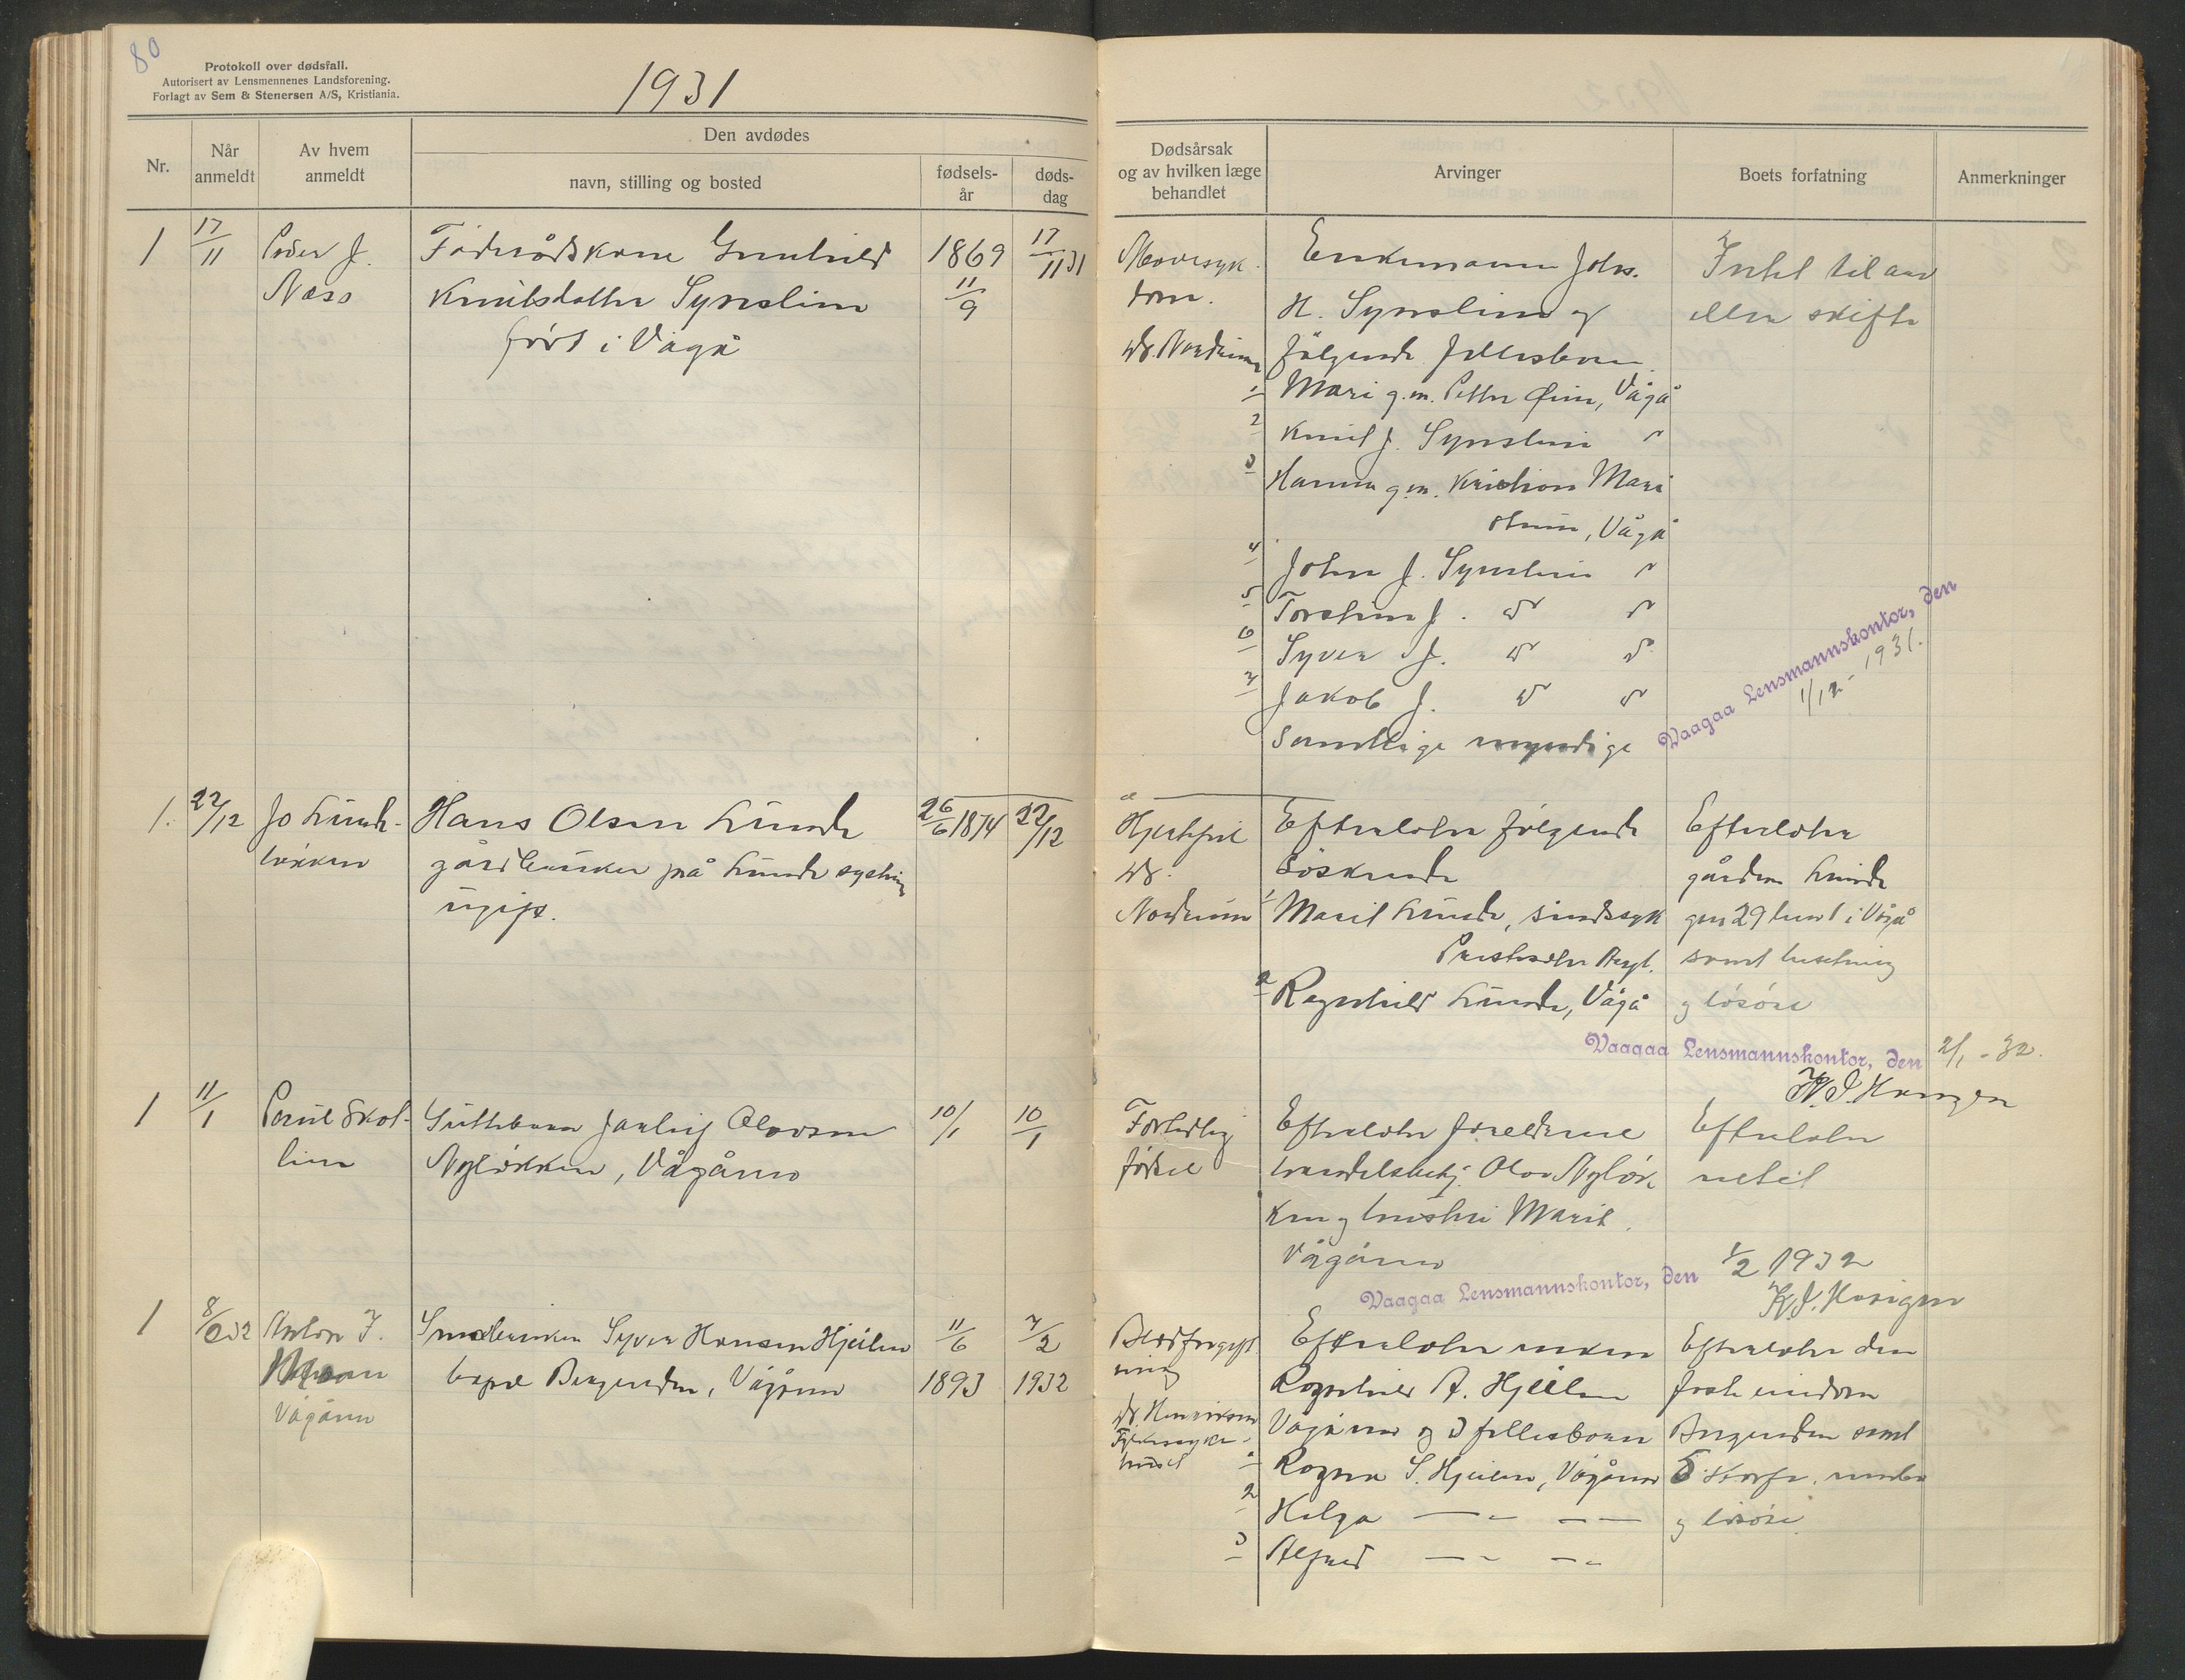 80
Protokoll over dødsfall.
Autorisert av Lensmennenes Landsforening.
Forlagt av Sem & Stenersen A/S, Kristiania.
1931
Nr.
Når anmeldt
Av hvem anmeldt
Den avdødes
navn, stilling og bosted
fødsels-
år
døds-
dag
Dødsårsak
og av hvilken læge
behandlet
Arvinger
Boets forfatning
Anmerkninger
1
17/11
Peder J.
Næss
Föderådskone Gunhild
Knutsdatter Synslien
født i Vågå
1869
11/9
17/11 31
Mavesyk-
dom.
Dr. Nordrum
Enkemann Johs.
H. Synslien og
følgende fellesbarn
1 Mari g.m. Petter Øien, Vågå
2 Knut J. Synslien "
3 Hanna g.m. Kristian Mari
stuen, Vågå
4 John J. Synslien "
5 Torstein J. " "
6 Syver J. " "
7 Jakob J. " "
Samtlige myndige
Intet til arv
eller skifte
Vaagaa Lensmannskontor, den
1/12 - 1931.
1.
22/12
Jo Lunde-
løkken
Hans Olsen Lunde
gårdbruker på Lunde
ugift.
26/6 1874
22/12
Hjertefeil
Dr.
Nordrum
Efterlater følgende
søskende
1 Marit Lunde, sindssyk
2 Ragnhild Lunde, Vågå
Efterlater
gården Lunde
gnr 29 bnr 1 i Vågå
samt besetning
og løsøre
Vaagaa Lensmannskontor, den 2/1 - 32.
1
11/1
Paul Skot-
lien
Guttebarn Olavsen
Nyløkken, Vågåmo
10/1
10/1
Fortidlig
fødsel
Efterlater foreldrene
handelsbetj. Olav Nyløk-
ken og hustru Marit
Vågåmo
Efterlater
intet
Vaagaa Lensmannskontor, den 1/2 1932
1
8/2 32
Anton J.
Vågåmo
Småbruker Syver Hansen Hjeilen
Vågåmo
11/6
1893
7/2
1932
Blodforgift
ning
Dr. Henriksen
Fylkessyke-
huset
Efterlater enken
Ragnhild A. Hjeilen
Vågåmo og 3 fellesbarn
1 Ragna S. Hjeilen, Vågåmo
2 Helga — " — —
3 Alfred — " — "
Efterlater den
faste eiendom
samt
og løsøre